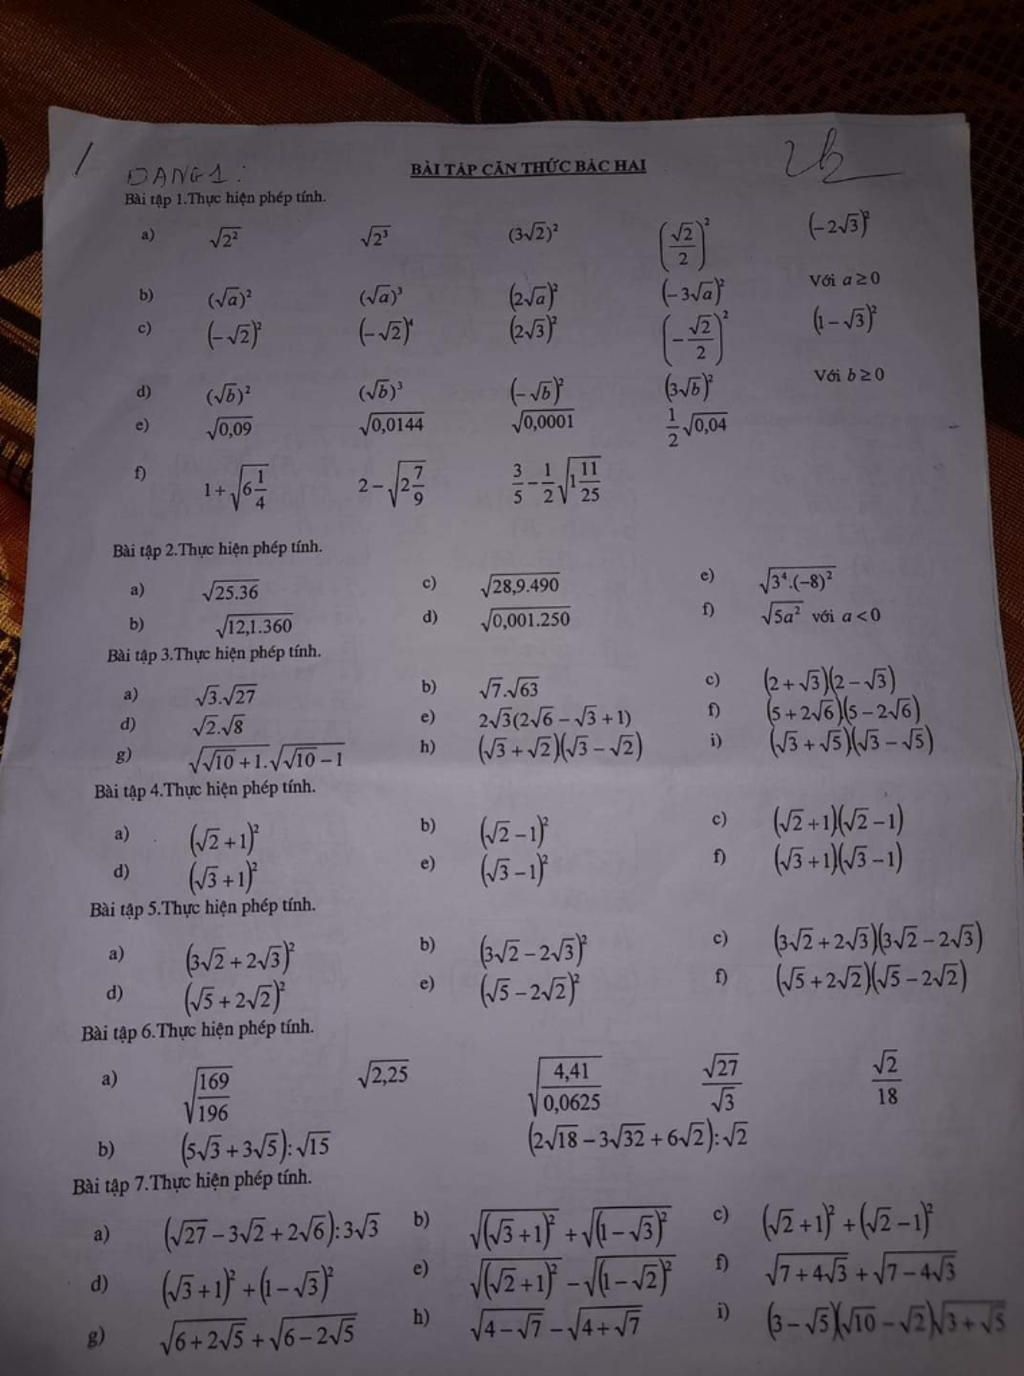 BÀI TẬP CĂN THỨC BẬC HAI
DẠNG 1:
Bài tập 1.Thực hiện phép tính.
a) √(2²) √(2³) (3√2)² (√2/2)² (-2√3)²
b) (√a)² (√a)³ (2√a)² (-3√a)² Với a ≥ 0
c) (-√2)² (-√2)⁴ (2√3)² (-√2/2)² (1-√3)²
d) (√b)² (√b)³ (-√b)² (3√b)² Với b ≥ 0
e) √(0,09) √(0,0144) √(0,0001) 1/2 √(0,04)
f) 1+√(6 1/4) 2-√(2 7/9) 3/5 - 1/2 √(1 11/25)
Bài tập 2.Thực hiện phép tính.
a) √(25.36) c) √(28,9.490) e) √(3⁴.(-8)²)
b) √(12,1.360) d) √(0,001.250) f) √(5a²) với a < 0
Bài tập 3.Thực hiện phép tính.
a) √3.√27 b) √7.√63 c) (2+√3)(2-√3)
d) √2.√8 e) 2√3(2√6-√3+1) f) (5+2√6)(5-2√6)
g) √(√10+1).√(√10-1) h) (√3+√2)(√3-√2) i) (√3+√5)(√3-√5)
Bài tập 4.Thực hiện phép tính.
a) (√2+1)² b) (√2-1)² c) (√2+1)(√2-1)
d) (√3+1)² e) (√3-1)² f) (√3+1)(√3-1)
Bài tập 5.Thực hiện phép tính.
a) (3√2+2√3)² b) (3√2-2√3)² c) (3√2+2√3)(3√2-2√3)
d) (√5+2√2)² e) (√5-2√2)² f) (√5+2√2)(√5-2√2)
Bài tập 6.Thực hiện phép tính.
a) √(169/196) √(2,25) √(4,41/0,0625) √27/√3 √2/18
b) (5√3+3√5):√15 (2√18-3√32+6√2):√2
Bài tập 7.Thực hiện phép tính.
a) (√27-3√2+2√6):3√3 b) √((√3+1)²)+√((1-√3)²) c) (√2+1)²+(√2-1)²
d) (√3+1)²+(1-√3)² e) √((√2+1)²)-√((1-√2)²) f) √(7+4√3)+√(7-4√3)
g) √(6+2√5)+√(6-2√5) h) √(4-√7)-√(4+√7) i) (3-√5)(√10-√2)√(3+√5)